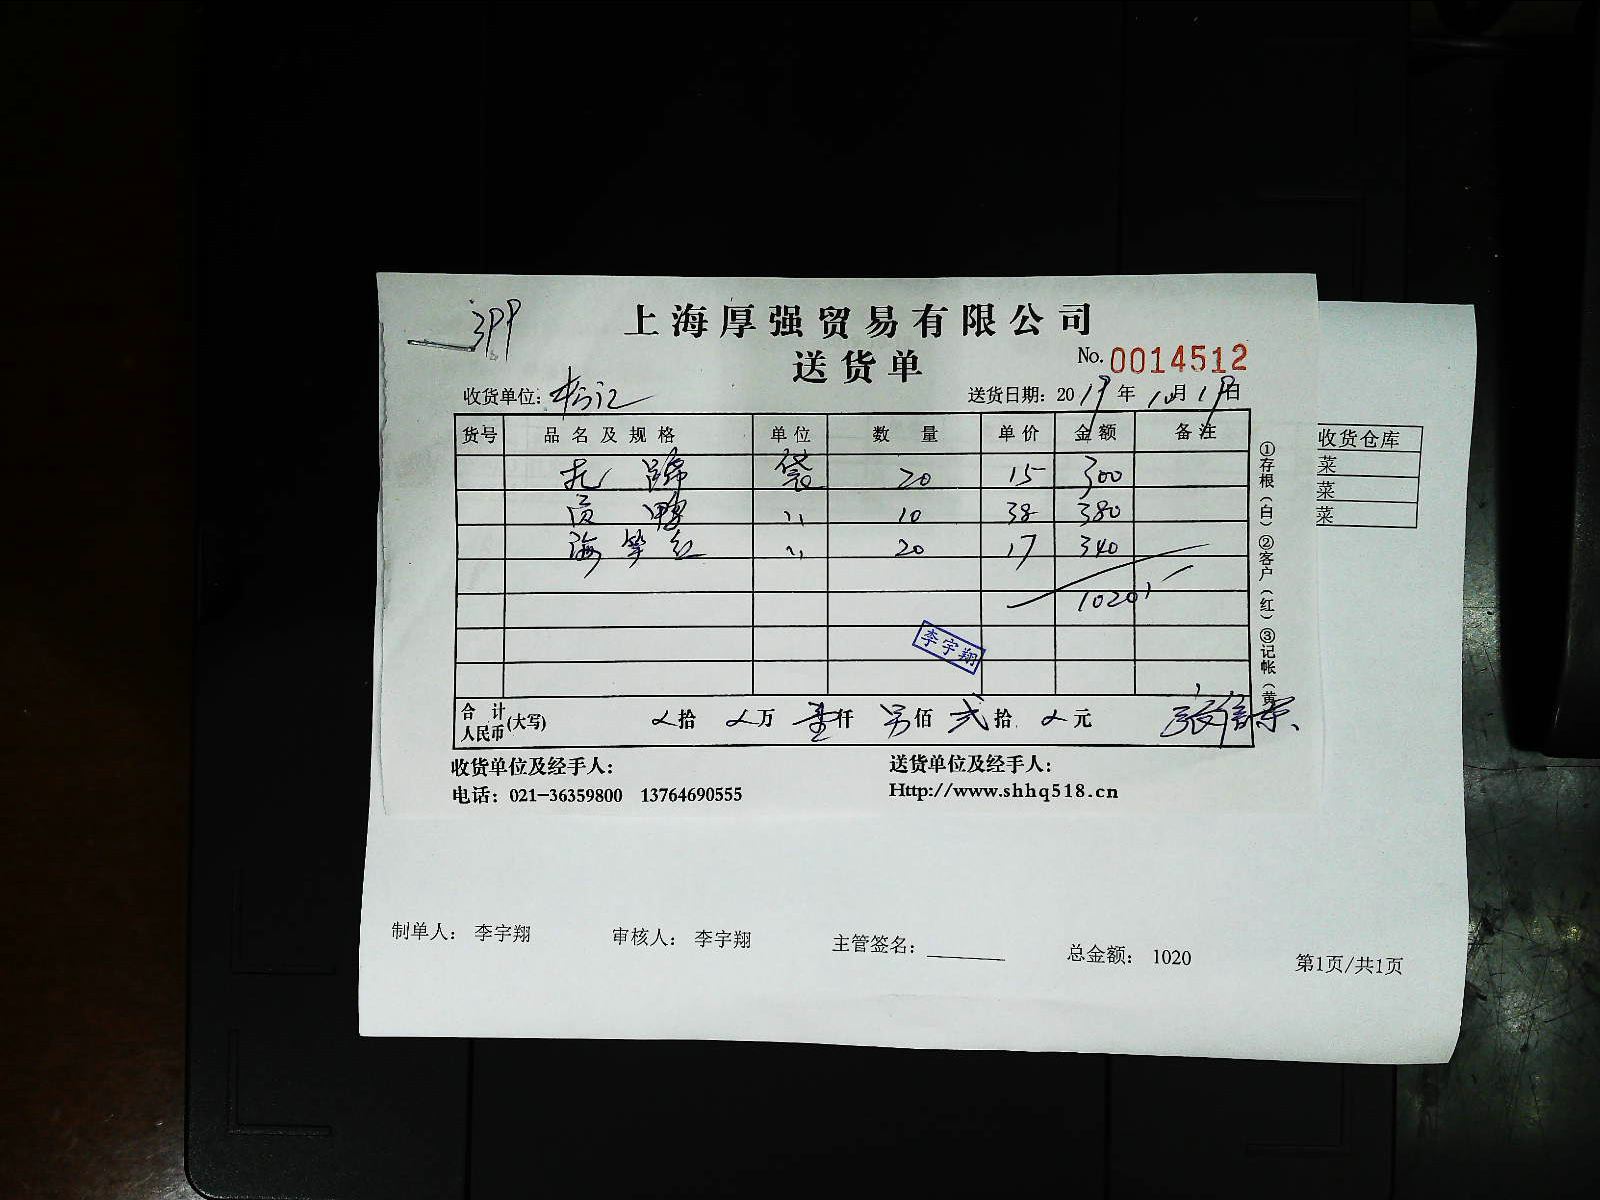 399
上海厚强贸易有限公司
送货单
No. 0014512
收货单位:
送货日期: 2019年10月19日
货号 品名及规格 单位 数量 单价 金额 备注
袋 20 15 300
鸭 〃 10 38 380
海 红 〃 20 17 340
1020
李宇翔
合计人民币(大写) 拾 万 壹仟 另佰 弍拾 元
①存根(白)②客户(红)③记帐(黄
收货单位及经手人:
送货单位及经手人:
电话: 021-36359800 13764690555
Http://www.shhq518.cn
收货仓库
菜
菜
菜
制单人: 李宇翔 审核人: 李宇翔 主管签名: 总金额: 1020 第1页/共1页